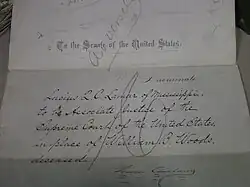 To the Senate of the United States.
I nominate
Lucius Q. C. Lamar of Mississippi,
to be Associate Justice of the
Supreme Court of the United States,
in place of William B. Woods,
deceased.
Grover Cleveland